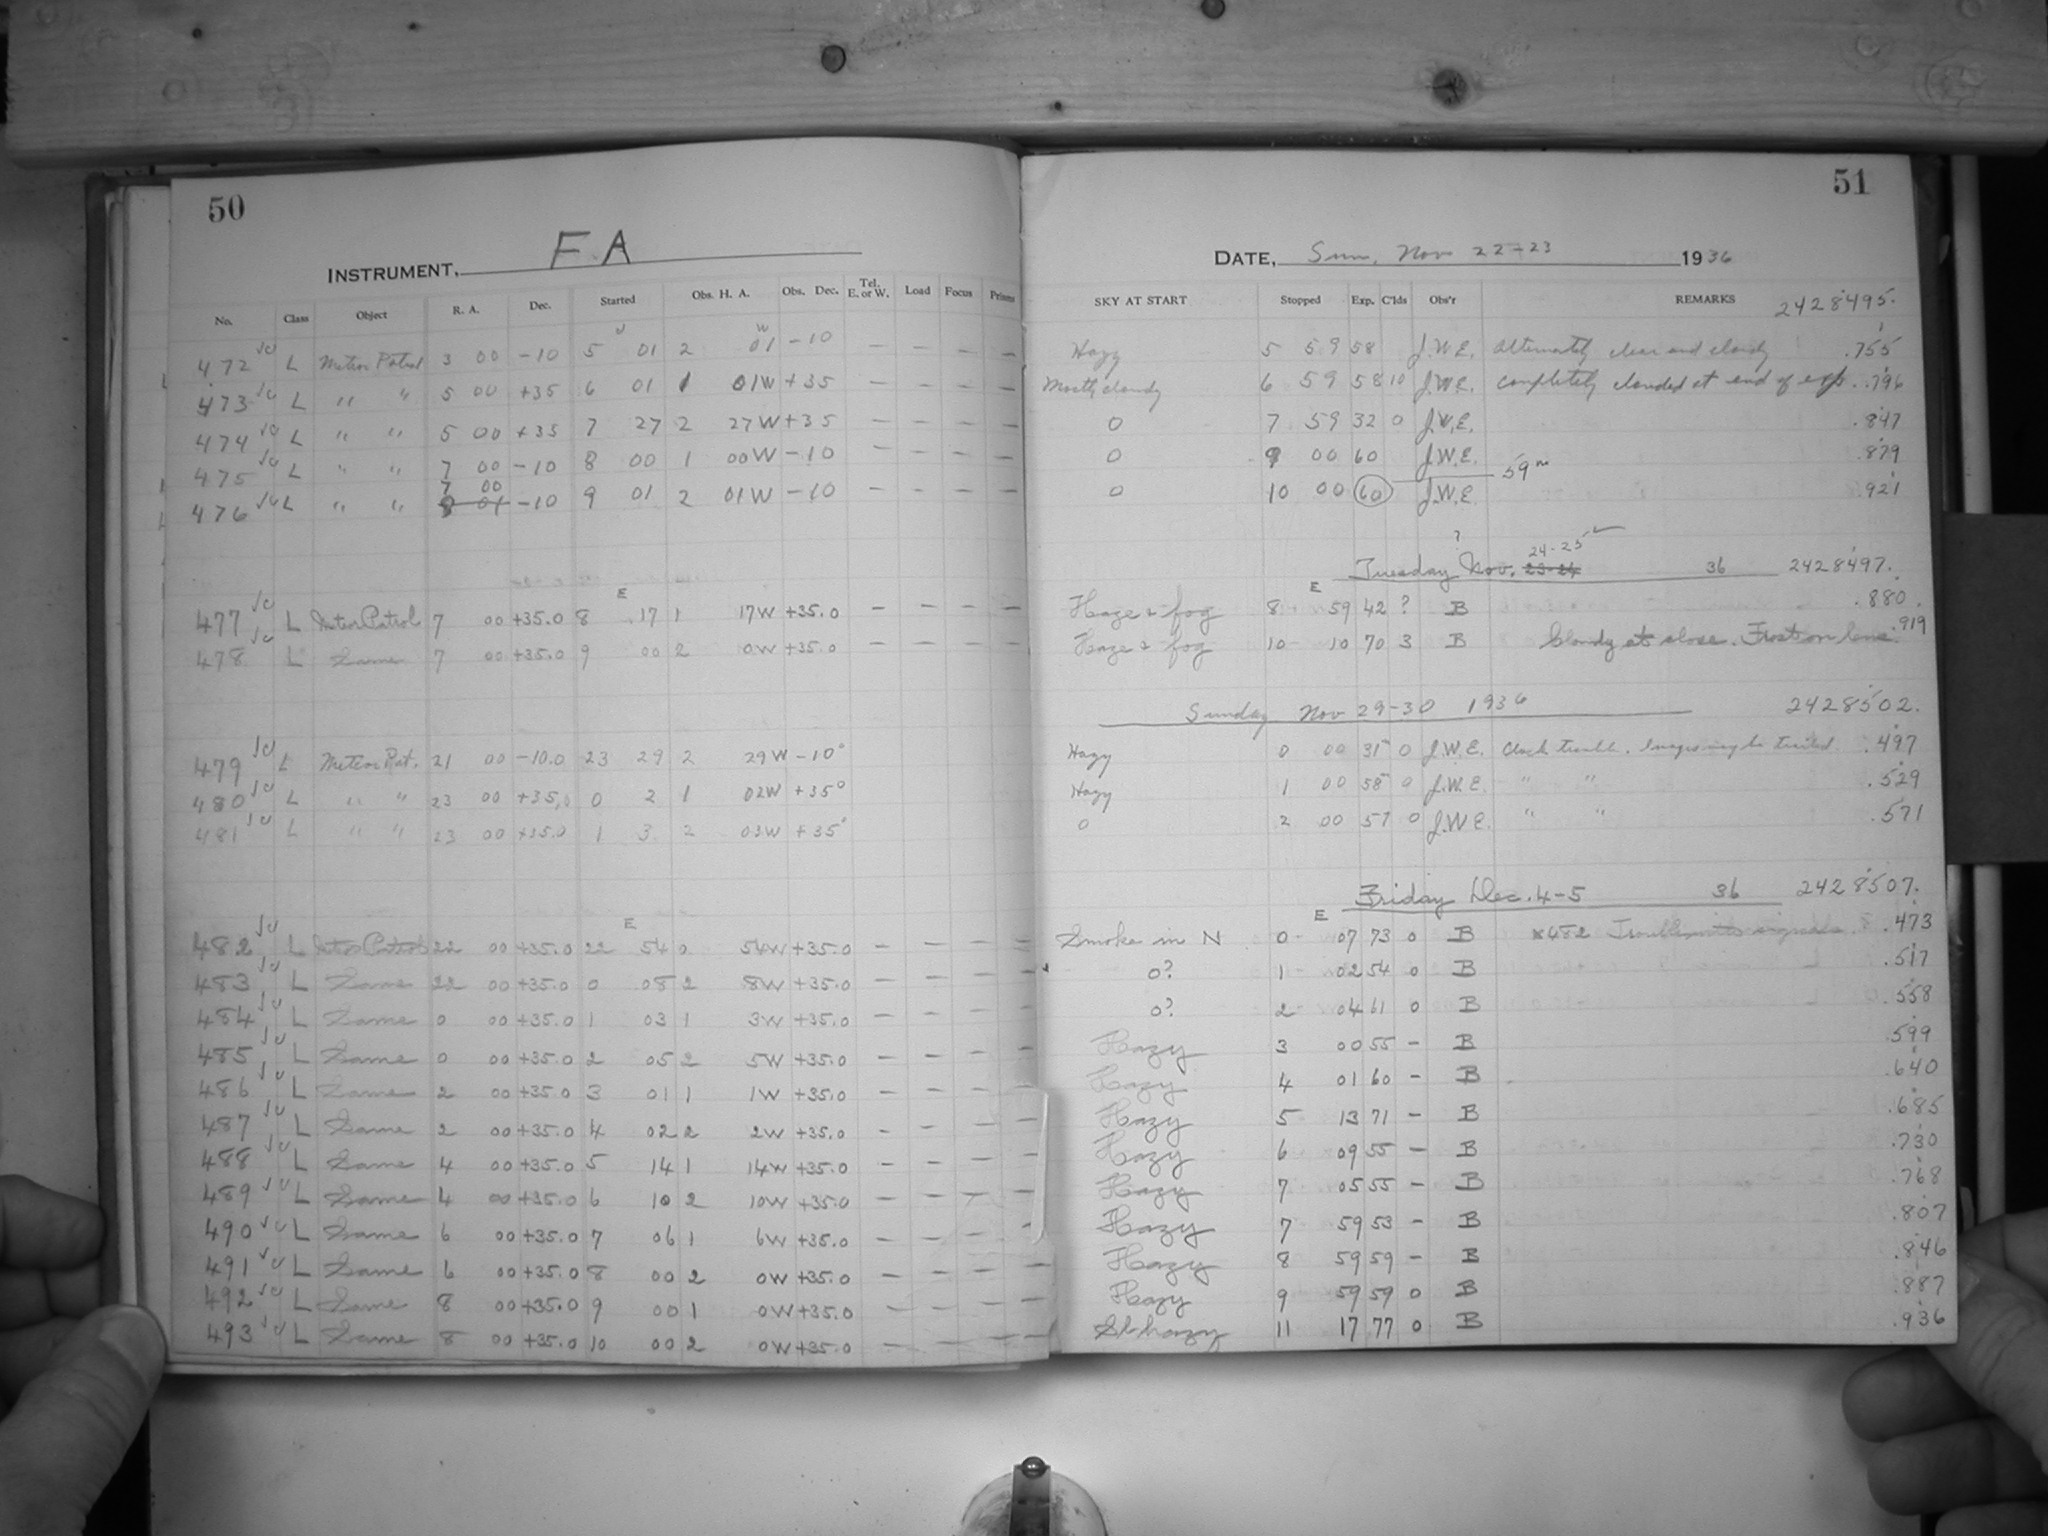 50
INSTRUMENT, FA
No. Class Object R. A. Dec. Started Obs. H. A. Obs. Dec. Tel. E. or W. Load Focus Prisms
472 L Meteor Patrol 3 00 -10 5 01 2 01 W -10 — — — —
473 L " " 5 00 +35 6 01 1 01W +35 — — — —
474 L " " 5 00 +35 7 27 2 27W +35 — — — —
475 L " " 7 00 -10 8 00 1 00W -10 — — — —
7 00
476 L " " 8 01 -10 9 01 2 01W -10 — — — —
E
477 L Meteor Patrol 7 00 +35.0 8 17 1 17W +35.0 — — — —
478 L Same 7 00 +35.0 9 00 2 0W +35.0 — — — —
479 L Meteor Pat. 21 00 -10.0 23 29 2 29W -10°
480 L " " 23 00 +35.0 0 2 1 02W +35°
481 L " " 23 00 +35.0 1 3 2 03W +35°
E
482 L Meteor Patrol 22 00 +35.0 22 54 0 54W +35.0 — — — —
483 L Same 22 00 +35.0 0 08 2 8W +35.0 — — — —
484 L Same 0 00 +35.0 1 03 1 3W +35.0 — — — —
485 L Same 0 00 +35.0 2 05 2 5W +35.0 — — — —
486 L Same 2 00 +35.0 3 01 1 1W +35.0 — — — —
487 L Same 2 00 +35.0 4 02 2 2W +35.0 — — — —
488 L Same 4 00 +35.0 5 14 1 14W +35.0 — — — —
489 L Same 4 00 +35.0 6 10 2 10W +35.0 — — — —
490 L Same 6 00 +35.0 7 06 1 6W +35.0 — — — —
491 L Same 6 00 +35.0 8 00 2 0W +35.0 — — — —
492 L Same 8 00 +35.0 9 00 1 0W +35.0 — — — —
493 L Same 8 00 +35.0 10 00 2 0W +35.0 — — — —
51
DATE, Sun. Nov 22-23 1936
SKY AT START Stopped Exp. C'lds Obs'r REMARKS 2428495.
Hazy 5 59 58 J.W.E. Alternately clear and cloudy .755
Mostly cloudy 6 59 58 10 J.W.E. Completely clouded at end of exp. .796
0 7 59 32 0 J.W.E. .847
0 9 00 60 J.W.E. .879
59m
0 10 00 60 J.W.E. .921
?
24-25
Tuesday Nov. 23-24 36 2428497.
E
Haze & fog 8 59 42 ? B .880
Haze & fog 10 10 70 3 B Cloudy at close. Frost on lens. .919
Sunday Nov 29-30 1936 2428502.
Hazy 0 00 31m 0 J.W.E. Clock trouble. Images may be trailed .497
Hazy 1 00 58m 0 J.W.E. " " .529
0 2 00 57 0 J.W.E. " " .571
Friday Dec. 4-5 36 2428507.
E
Smoke in N 0 07 73 0 B 482 Trouble with signals .473
0? 1 02 54 0 B .517
0? 2 04 61 0 B .558
Hazy 3 00 55 — B .599
Hazy 4 01 60 — B .640
Hazy 5 13 71 — B .685
Hazy 6 09 55 — B .730
Hazy 7 05 55 — B .768
Hazy 7 59 53 — B .807
Hazy 8 59 59 — B .846
Hazy 9 59 59 0 B .887
Sl. hazy 11 17 77 0 B .936